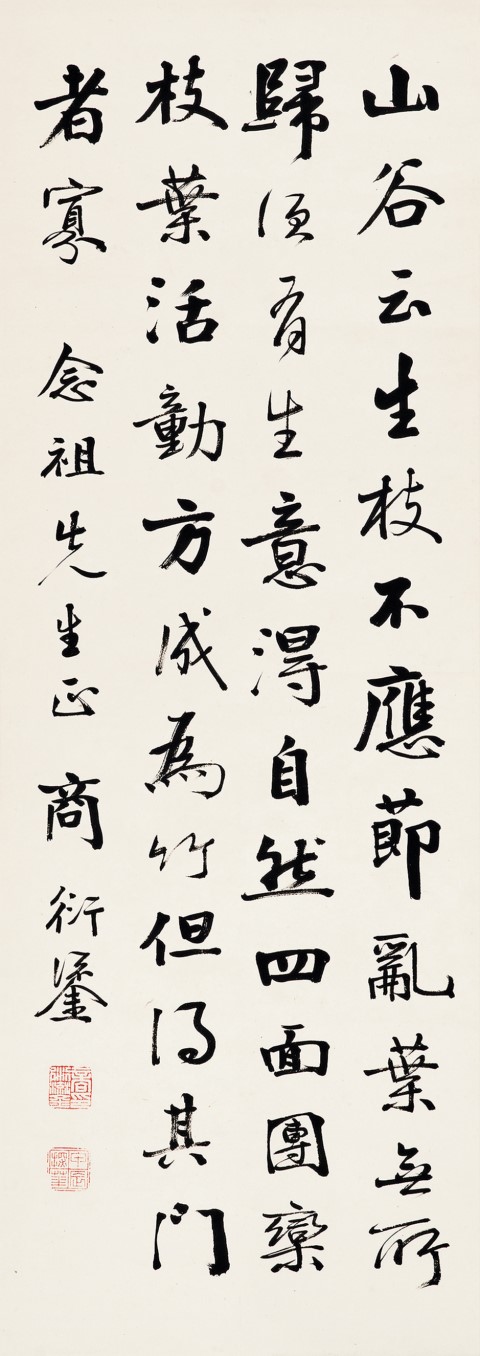 山谷云生枝不應節亂葉無所
歸須有生意得自然四面團欒
枝葉活動方成為竹但得其門
者寡　念祖先生正　商衍鎏